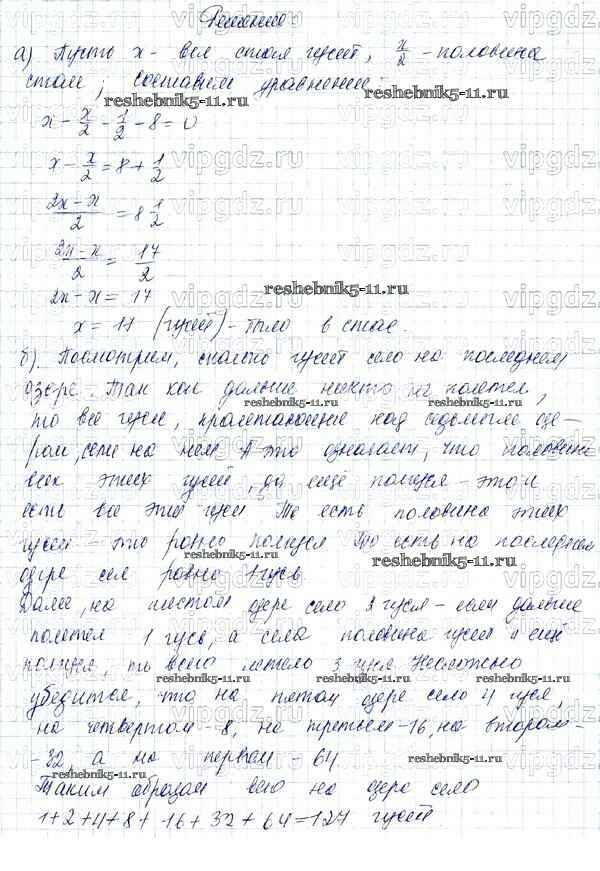 Решение
а) Пусть x - вся стая гусей, x/2 - половина
стаи; Составим уравнение:
reshebnik5-11.ru
x - x/2 - 1/2 - 8 = 0
x - x/2 = 8 + 1/2
(2x - x)/2 = 8 1/2
(2x - x)/2 = 17/2
reshebnik5-11.ru
2x - x = 17
x = 17 (гусей) - было в стае.
б). Посмотрим, сколько гусей село на последнем
озере. Так как дальше никто не полетел,
reshebnik5-11.ru
то все гуси, пролетавшие над седьмым озе-
ром, сели на нем. А это означает, что половина
всех этих гусей, да ещё полгуся - это и
есть все эти гуси. То есть половина этих
гусей - это ровно полгуся. То есть на последнем
reshebnik5-11.ru
reshebnik5-11.ru
озере сел ровно 1 гусь.
Далее, на шестом озере село 2 гуся - если дальше
полетел 1 гусь, а села половина гусей и ещё
полгуся, то всего летело 3 гуся. Несложно
reshebnik5-11.ru
убедиться, что на пятом озере село 4 гуся,
на четвертом - 8, на третьем - 16, на втором -
- 32, а на первом - 64.
reshebnik5-11.ru
Таким образом всего на озере село
1+2+4+8+16+32+64=127 гусей
reshebnik5-11.ru
vipgdz.ru